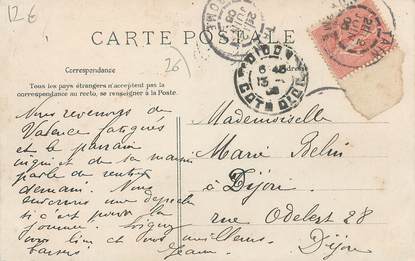 12 €
CARTE POSTALE
26
Correspondance
Adresse
Tous les pays étrangers n'acceptent pas la
correspondance au recto, se renseigner à la Poste.
DIJON
6 45
13
COTE D'OR
Nous revenons de
Valence fatigués
et le parrain
de sa main
parle de rentrer
demain. Nous
enverrons une depeche
si c'est pour la
vous bien et vous
baisers Jeanne
Mademoiselle
Marie Belin
à Dijon
rue Odebert 28
Dijon